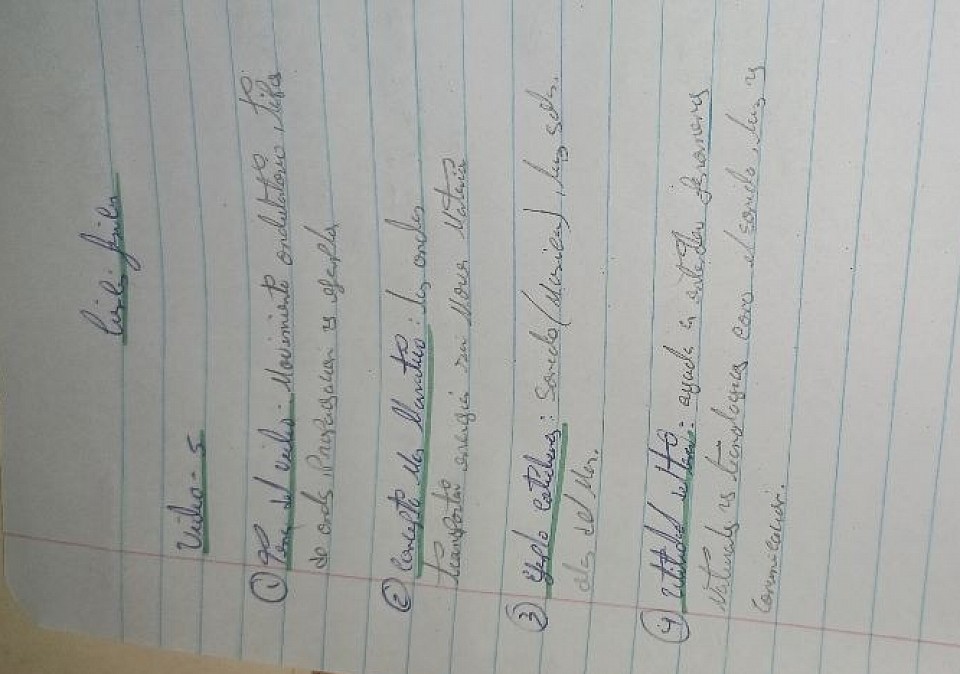 Video - 5
① Tema del video - Movimiento ondulatorio, tipos
de onda, Propagacion y ejemplos
② Concepto Mas Llamativo: las ondas
transportan energia sin Mover Materia
③ Ejemplo cotidianos: Sonido (Musica), luz solar.
olas del Mar.
④ Utilidad del: ayuda a entender fenomenos
Naturales y tecnologicas como el sonido, luz y
Comunicacion.